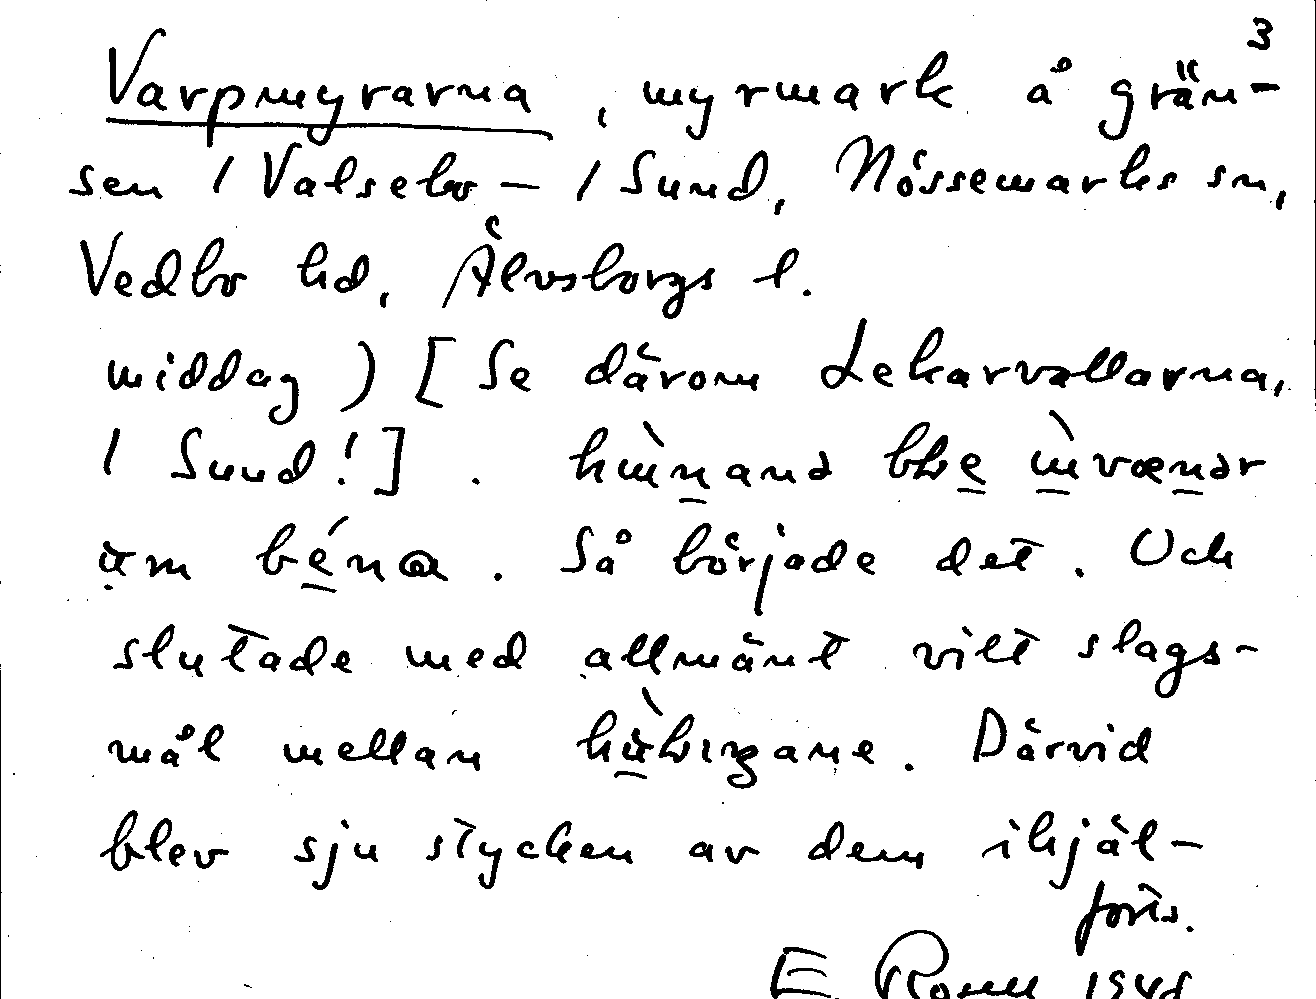 3
Varpmyrarna, myrmark å grän-
sen / Valsebo – / Sund, Nössemarks sn,
Vedbo hd, Älvsborgs l.
middag ) [ Se därom Lekarvallarna,
/ Sund! ] .
um béna . Så började det . Och
slutade med allmänt vilt slags-
mål mellan . Därvid
blev sju stycken av dem ihjäl-
forts.
E.